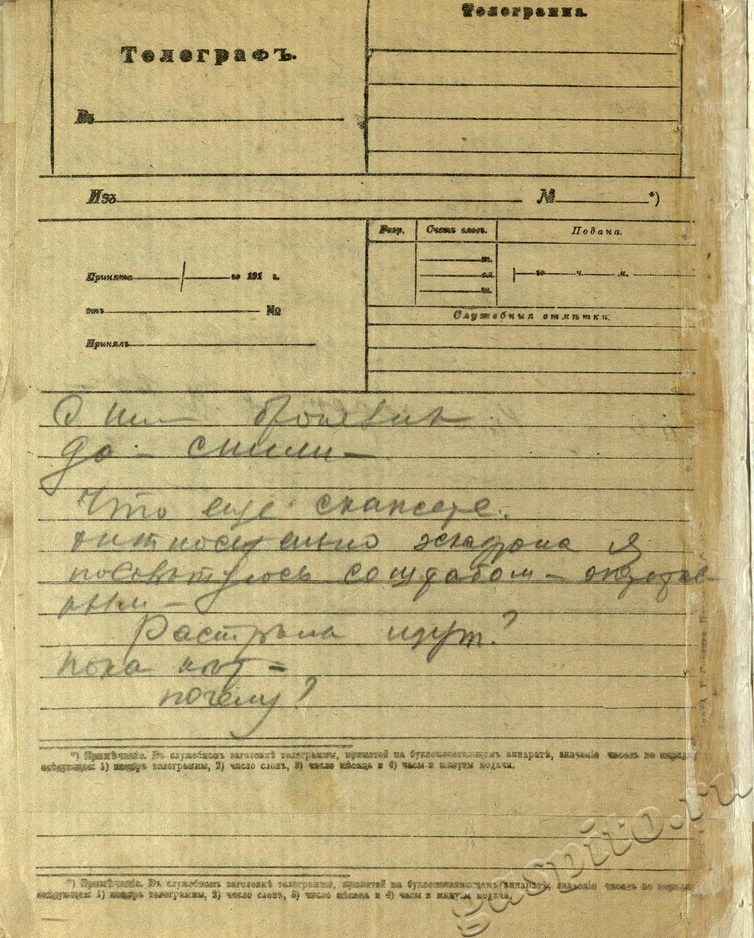 Телеграфъ.
Телеграмма.
Въ
Изъ № *)
Разр. Счетъ словъ. Подана.
Принята го 191 г.
го ч. м.
отъ №
Служебныя отмѣтки.
Принялъ
О
да — сняли —
Что еще скажете.
относительно эскадрона я
посовѣтуюсь со штабом —
Разстрѣлы идут?
пока нѣт =
почему?
*) Примѣчаніе. Въ служебномъ заголовкѣ телеграммы, принятой на буквопечатающемъ аппаратѣ, значеніе чиселъ по порядку
слѣдующее: 1) номеръ телеграммы, 2) число словъ, 3) число мѣсяца и 4) часы и минуты подачи.
*) Примѣчаніе. Въ служебномъ заголовкѣ телеграммы, принятой на буквопечатающемъ аппаратѣ, значеніе чиселъ по порядку
слѣдующее: 1) номеръ телеграммы, 2) число словъ, 3) число мѣсяца и 4) часы и минуты подачи.
gaspito.ru